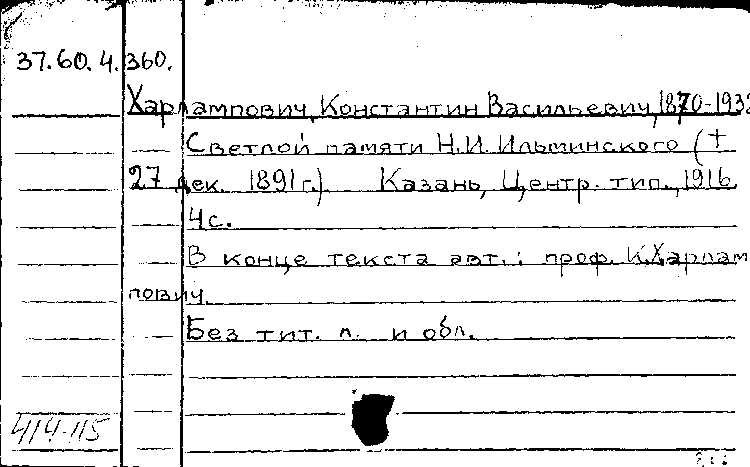 37.60.4.360.
Харлампович, Константин Васильевич, 1870-1932
Светлой памяти Н.И. Ильминского (†
27 дек. 1891 г.). Казань, Центр. тип., 1916.
4 с.
В конце текста авт.: проф. К.Харлам
пович.
Без тит. л. и обл.
414-115